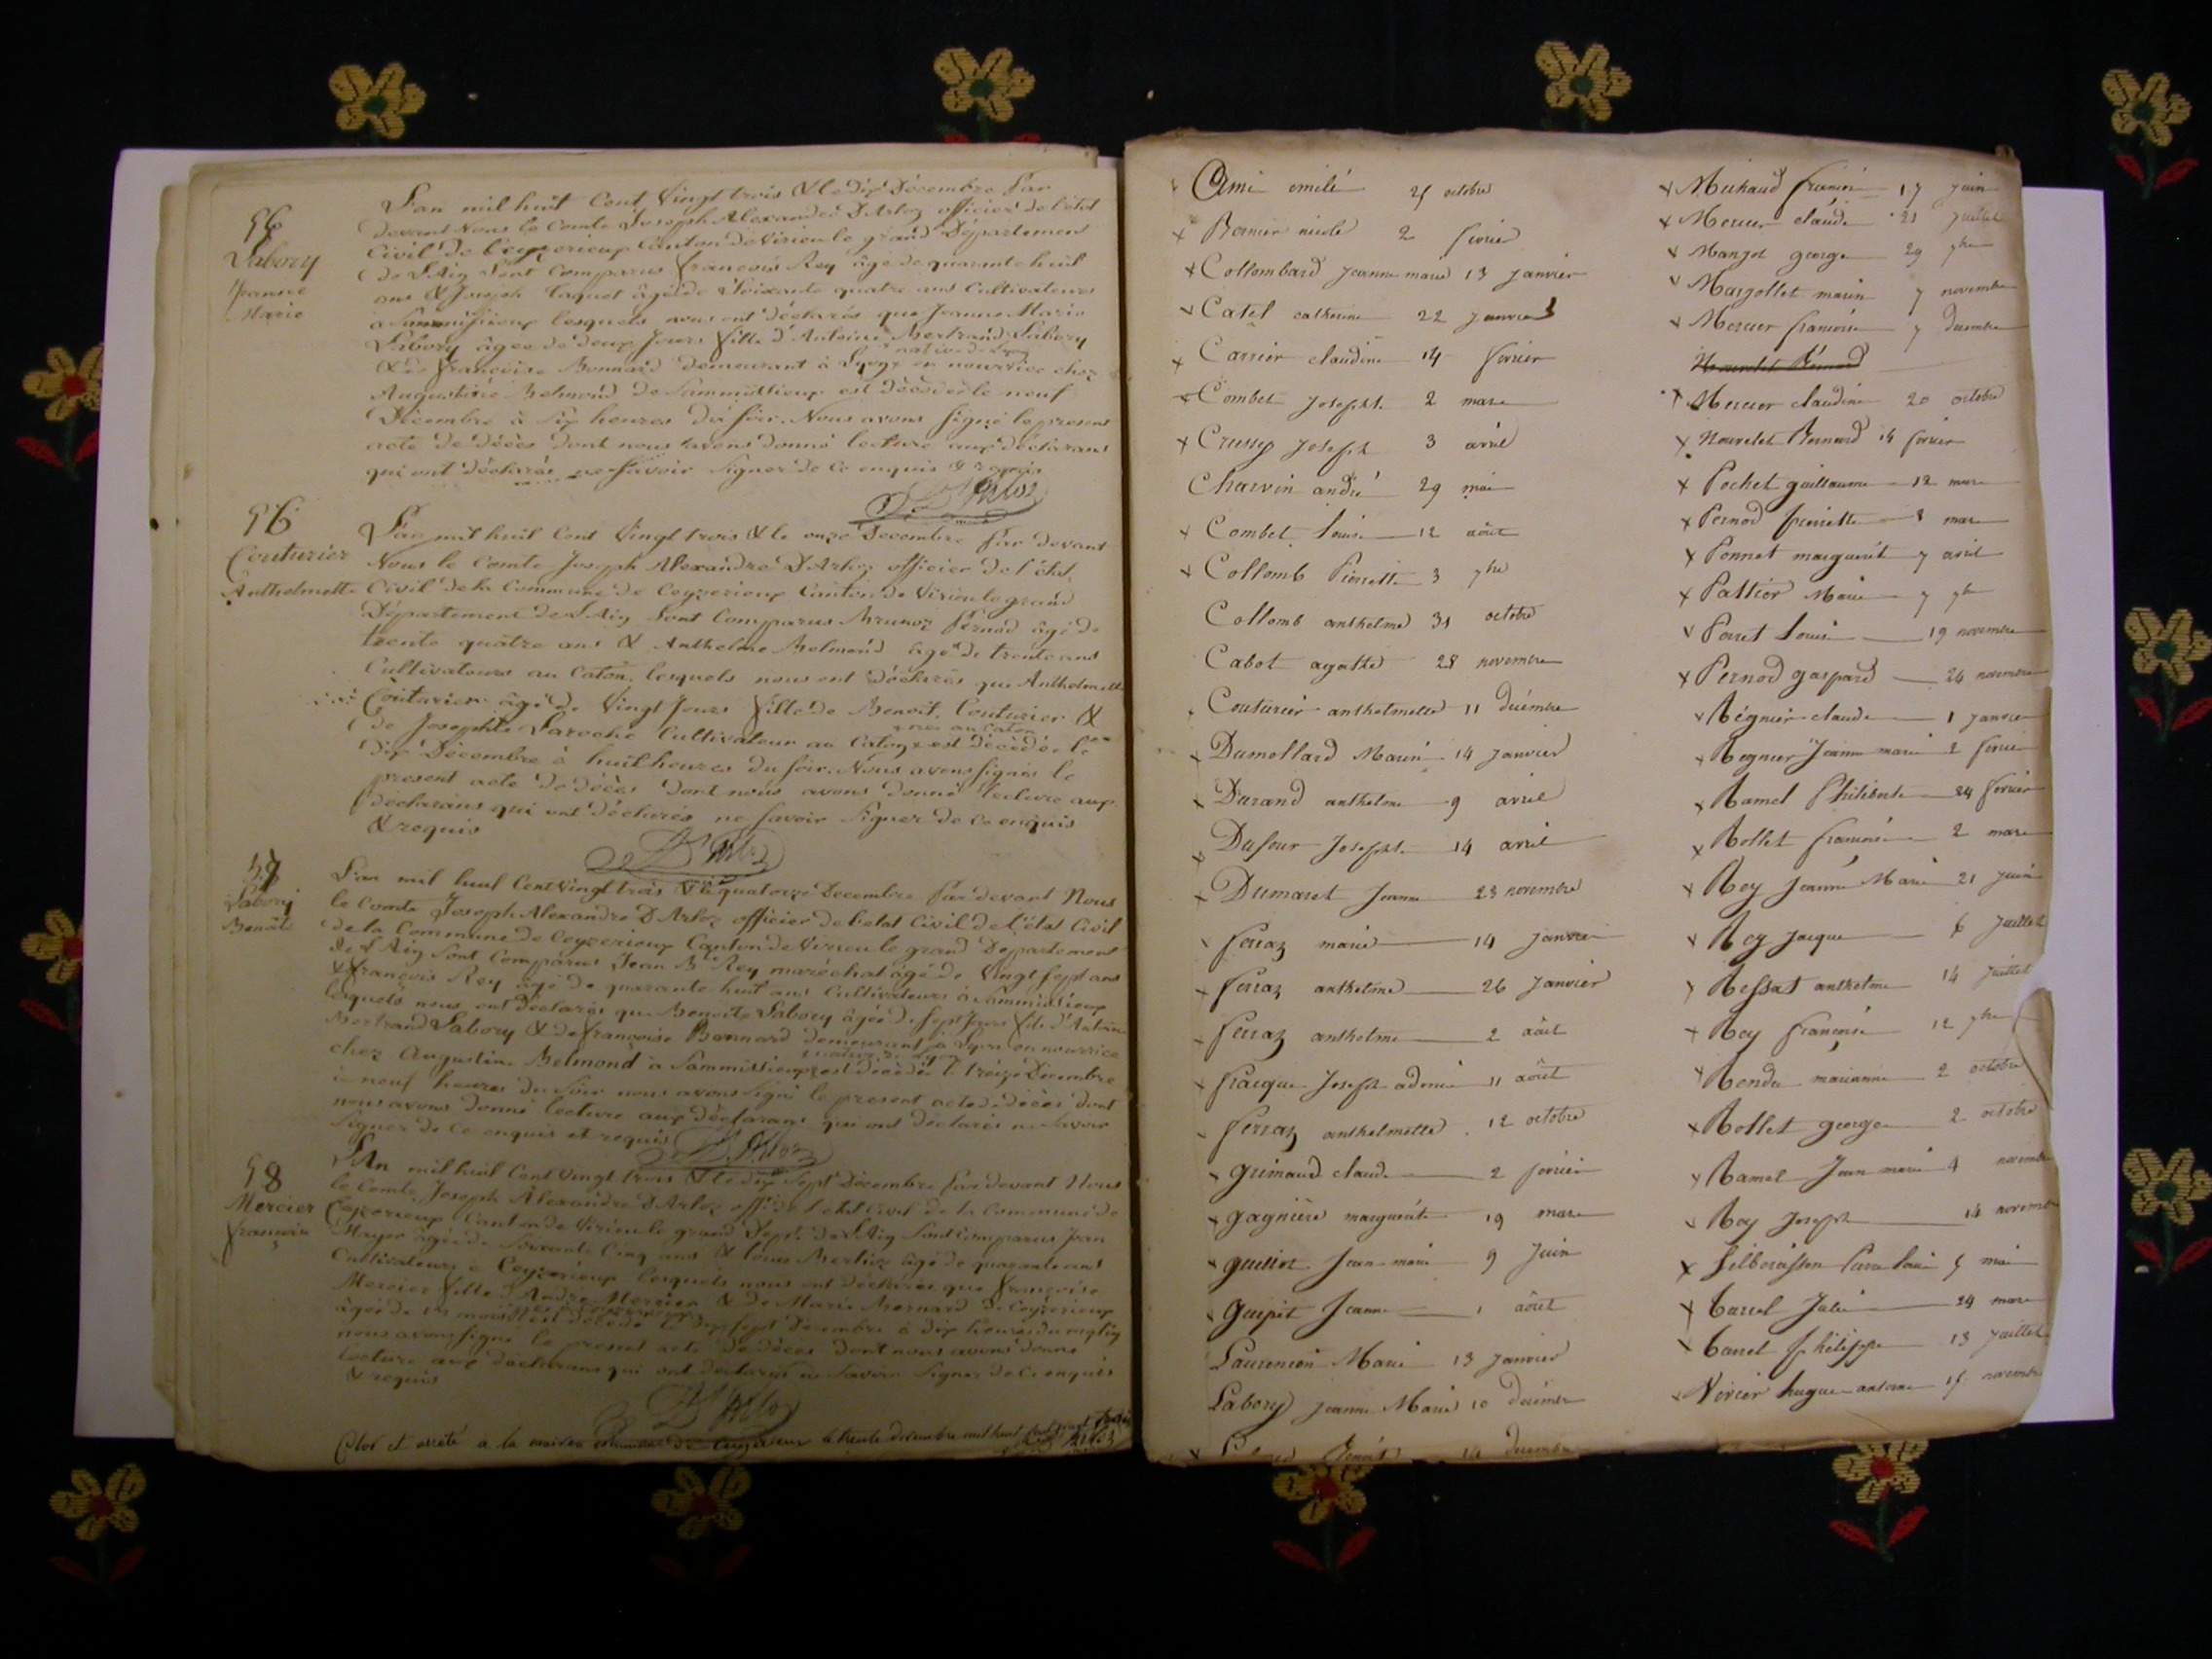 56
Labory
Jeanne
Marie
L'an mil huit Cent Vingt trois & le dix Décembre Par
devant Nous le Comte Joseph Alexandre D'Arloz officier de l'état
Civil de Ceyzerieux Canton de Virieu le grand Département
de L'Ain Sont Comparus françois Rey âgé de quarante huit
ans & Joseph âgé de Soixante quatre ans Cultivateurs
a lesquels nous ont déclarés que Jeanne Marie
Labory âgée de deux Jours fille d'Antoine Bertrand Labory
native de Lyon
& de françoise Bonnard demeurant à Lyon en nourrice chez
Augustine Belmond de est décédée le neuf
Décembre à Six heures du Soir. Nous avons Signé le present
acte de décès dont nous avons donné lecture aux déclarans
qui ont déclarés ne Savoir Signer de Ce enquis & requis
D'Arloz
56
Couturier
Anthelmette
L'an mil huit Cent Vingt trois & le onze Décembre Par devant
Nous le Comte Joseph Alexandre D'Arloz officier de l'état
Civil de la Commune de Ceyzerieux Canton de Virieu le grand
Département de L'Ain Sont Comparus Pernod âgé de
trente quatre ans & Anthelme Belmond âgé de trente ans
Cultivateurs au Caton. lesquels nous ont déclarés que Anthelmette
Couturier âgée de Vingt Jours fille de Benoit Couturier &
née au Caton
de Josephte Laroche Cultivateur au Caton est décédée le
Dix Décembre à huit heures du Soir. Nous avons Signés le
present acte de décès dont nous avons donné lecture aux
déclarans qui ont déclarés ne Savoir Signer de Ce enquis
& requis
D'Arloz
57
Labory
Benoite
L'an mil huit Cent Vingt trois & le quatorze Décembre Par devant Nous
le Comte Joseph Alexandre D'Arloz officier de l'etat Civil de l'état Civil
de la Commune de Ceyzerieux Canton de Virieu le grand Departement
de L'Ain Sont Comparus Jean Bte Rey maréchal âgé de Vingt Sept ans
& françois Rey âgé de quarante huit ans Cultivateurs à
lesquels nous ont déclarés que Benoite Labory âgée de Sept Jours fille d'Antoine
Bertrand Labory & de françoise Bonnard demeurant à Lyon en nourrice
native de Lyon
chez Augustine Belmond à est décédée le treize Décembre
à neuf heures du Soir nous avons Signé le present acte de décès dont
nous avons donné lecture aux déclarans qui ont déclarés ne Savoir
Signer de Ce enquis et requis
D'Arloz
58
Mercier
françoise
L'An mil huit Cent Vingt trois & le dix Sept Décembre Par devant Nous
le Comte Joseph Alexandre D'Arloz off. de l'état Civil de la Commune de
Ceyzerieux Canton de Virieu le grand Dept. de L'Ain Sont Comparus Jean
âgé de Soixante Cinq ans & Louis âgé de quarante ans
Cultivateurs à Ceyzerieux lesquels nous ont déclarés que françoise
Mercier fille d'Andre Mercier & de Marie Bernard de Ceyzerieux
âgée de mois est décédée le dix Sept Décembre à dix heures du matin
nous avons Signé le present acte de décès dont nous avons donné
lecture aux déclarans qui ont déclarés ne Savoir Signer de Ce enquis
& requis
D'Arloz
Clos et arrêté a la mairie commune de Ceyzerieux le trente décembre mil huit cent vingt trois
Ami emilé 25 octobre
x Bernier nicole 2 fevrier
x Collombard Jeanne marie 13 Janvier
x Catel catherine 22 Janvier
x Carrier claudine 14 fevrier
x Combet Josephte 2 mars
x Crussy Joseph 3 avril
Charvin andré 29 mai
x Combet Louise 12 août
x Collomb Pierrette 3 7bre
Collomb anthelme 31 octobre
Cabot agathe 28 novembre
Couturier anthelmette 11 décembre
x Dumollard Marie 14 Janvier
x Durand anthelme 9 avril
x Dufour Josephte 14 avril
x Dumaret Jeanne 23 novembre
x ferraz marie 14 Janvier
x ferraz anthelme 26 Janvier
x ferraz anthelme 2 août
x fracque Joseph 11 août
x ferraz anthelmette 12 octobre
x grimaud claude 2 fevrier
x gagnière marguerite 19 mars
x guillot Jean-marie 9 Juin
x guipit Jeanne 1 août
Laurencin Marie 13 Janvier
Labory Jeanne Marie 10 décembre
x Labory Benoite 14 décembre
x Michaud françoise 17 Juin
x Mercier claude 21 Juillet
x Manjot george 29 7bre
x Margollet marin 7 novembre
x Mercier françoise 7 décembre
Nouvelet Bernard
x Mercier claudine 20 octobre
x Nouvelet Bernard 14 fevrier
x Pochet guillaume 12 mars
x Pernod pierrette 8 mars
x Ponnet marguerit 7 avril
x Pallier Marie 7 7bre
x Perret Louis 19 novembre
x Pernod gaspard 24 novembre
x Régnier claude 1 Janvier
x Regnier Jeanne marie 2 fevrier
x Ramel Philiberte 24 fevrier
x Rollet françoise 2 mars
x Rey Jeanne Marie 21 Juin
x Rey Jacque 6 Juillet
x Ressat anthelme 14 Juillet
x Rey françoise 12 7bre
x Rendu marianne 2 octobre
x Rollet george 2 octobre
x Ramel Jean marie 4 novembre
x Rey Joseph 14 novembre
x 5 mai
x Carrel Julie 24 mars
x Carrel philippe 13 Juillet
x Virier hugue antoine 15 novembre